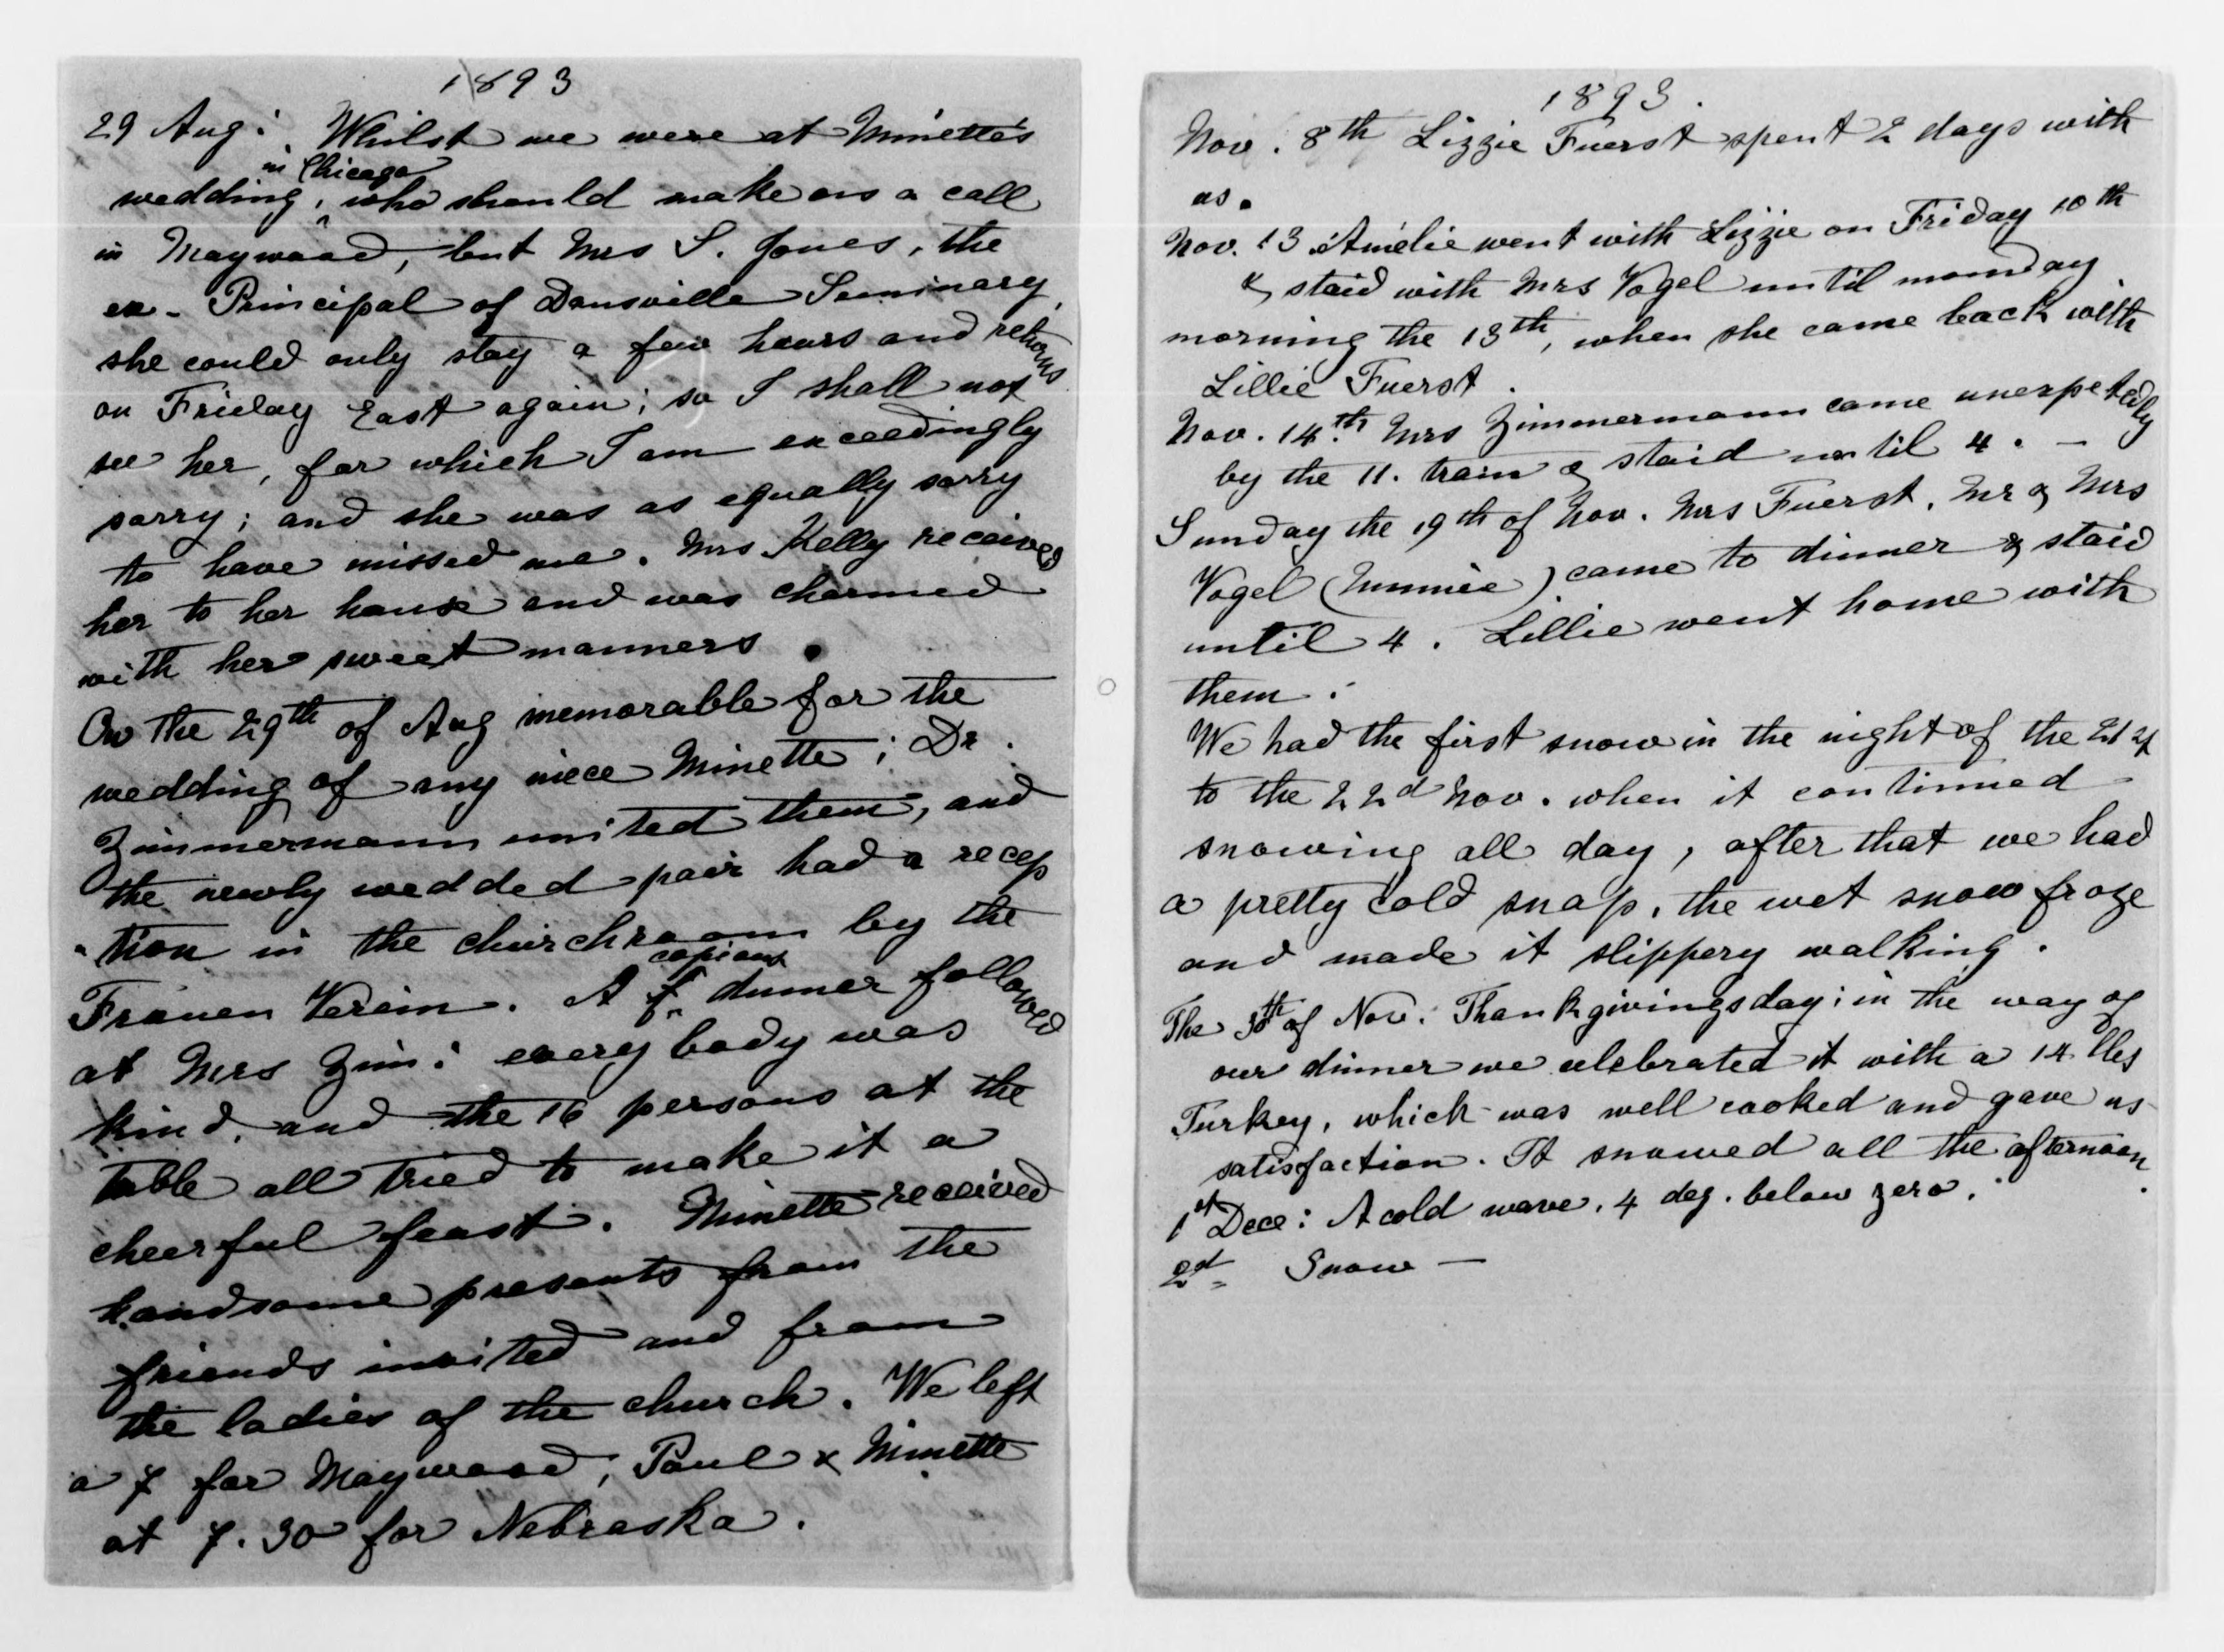 1893
29 Aug: Whilst we were at Minette's
in Chicago
wedding, who should make us a call
in Maywood, but Mrs S. Jones, the
ex-Principal of Dansville Seminary,
she could only stay a few hours and returns
on Friday East again; so I shall not
see her, for which I am exceedingly
sorry; and she was as equally sorry
to have missed me. Mrs Kelly received
her to her house and was charmed
with her sweet manners.
On the 29th of Aug memorable for the
wedding of my niece Minette; Dr.
Zimmermann united them, and
the newly wedded pair had a recep
-tion in the churchroom by the
copious
Frauen Verein. A f dinner followed
at Mrs Zim: every body was
kind, and the 16 persons at the
table all tried to make it a
cheerful feast. Minette received
handsome presents from the
friends invited and from
the ladies of the church. We left
a 7 for Maywood; Paul & Minette
at 7.30 for Nebraska.
1893.
Nov. 8th Lizzie Fuerst spent 2 days with
us.
Nov. 13 Amelie went with Lizzie on Friday 10th
& staid with Mrs Vogel until monday
morning the 13th, when she came back with
Lillie Fuerst.
Nov. 14th Mrs Zimmermann came unexpetedly
by the 11. train & staid until 4. —
Sunday the 19th of Nov. Mrs Fuerst, Mr & Mrs
Vogel (Minnie) came to dinner & staid
until 4. Lillie went home with
them.
We had the first snow in the night of the 21st
to the 22d Nov. when it continued
snowing all day, after that we had
a pretty cold snap, the wet snow froze
and made it slippery walking.
The 30th of Nov: Thankgivingsday; in the way of
our dinner we celebrated it with a 14 lbs
Turkey, which was well cooked and gave us
satisfaction. It snowed all the afternoon.
1st Dece: A cold wave, 4 deg. below zero.
2d Snow —